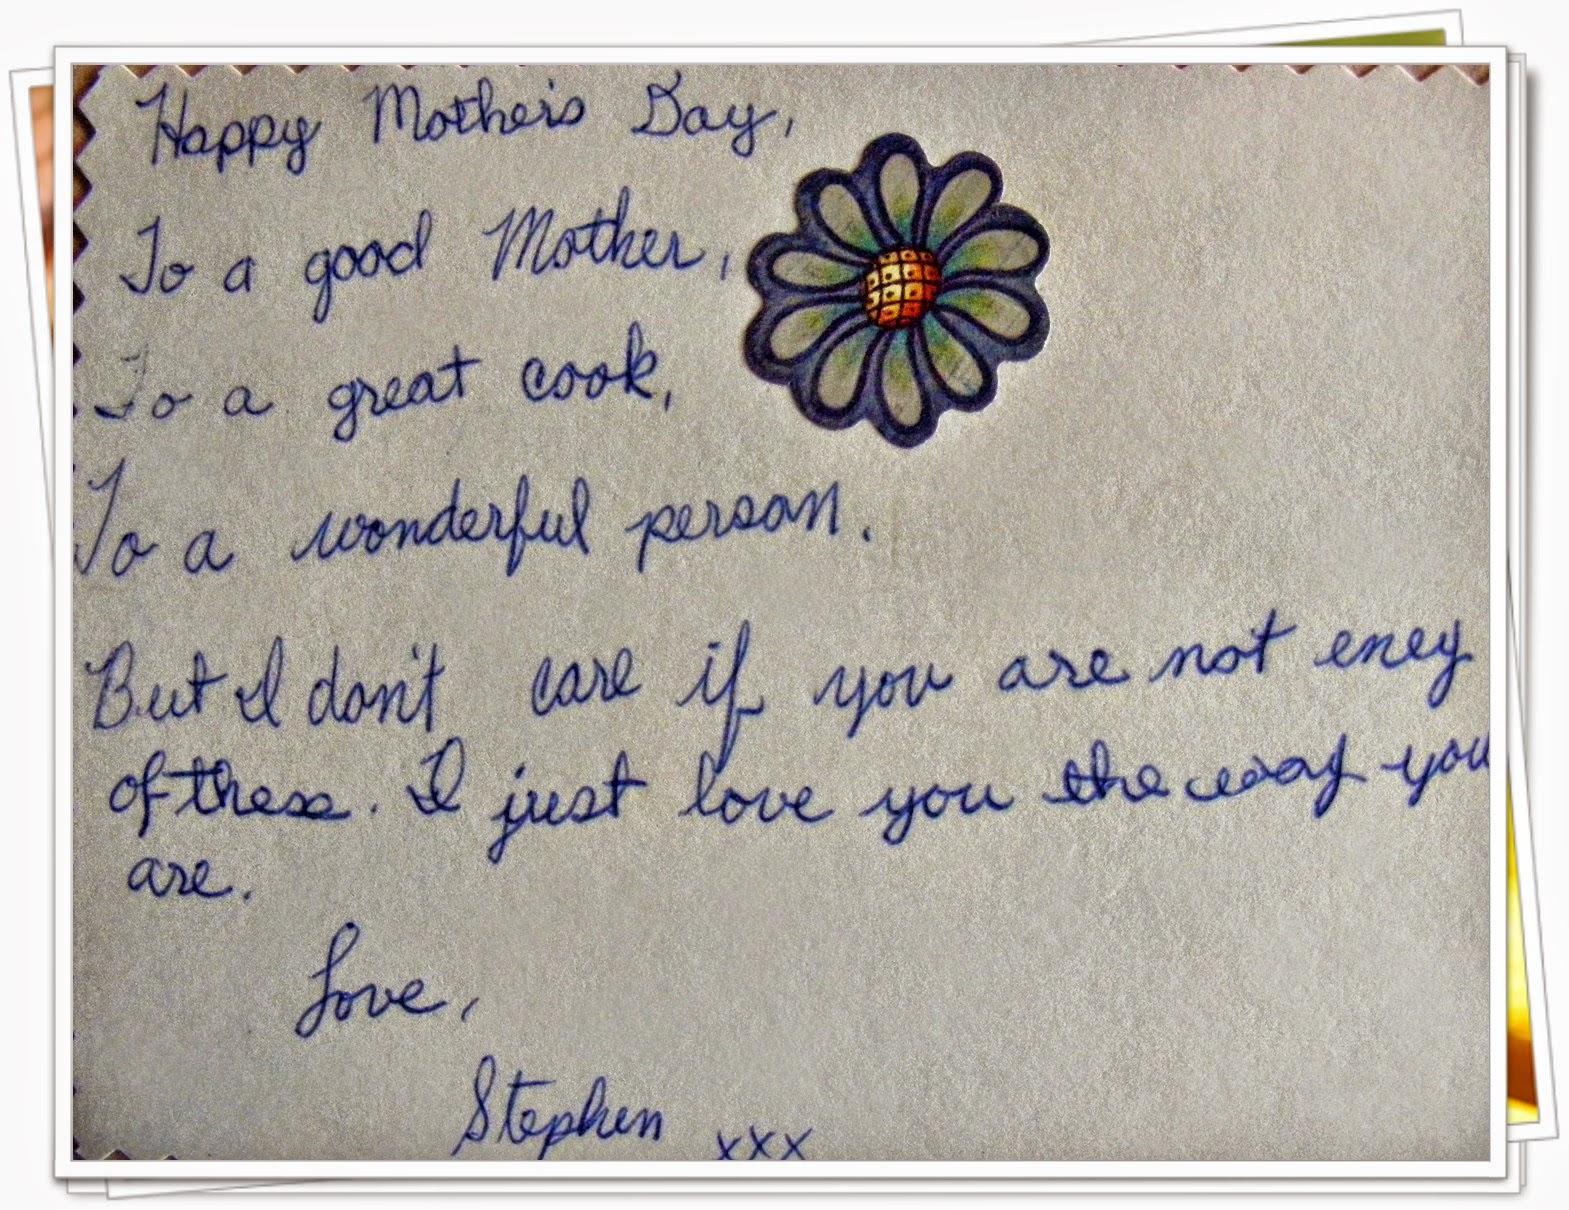 Happy Mother's Day,
To a good Mother,
To a great cook,
To a wonderful person.
But I don't care if you are not eney
of these. I just love you the way you
are.
Love,
Stephen xxx